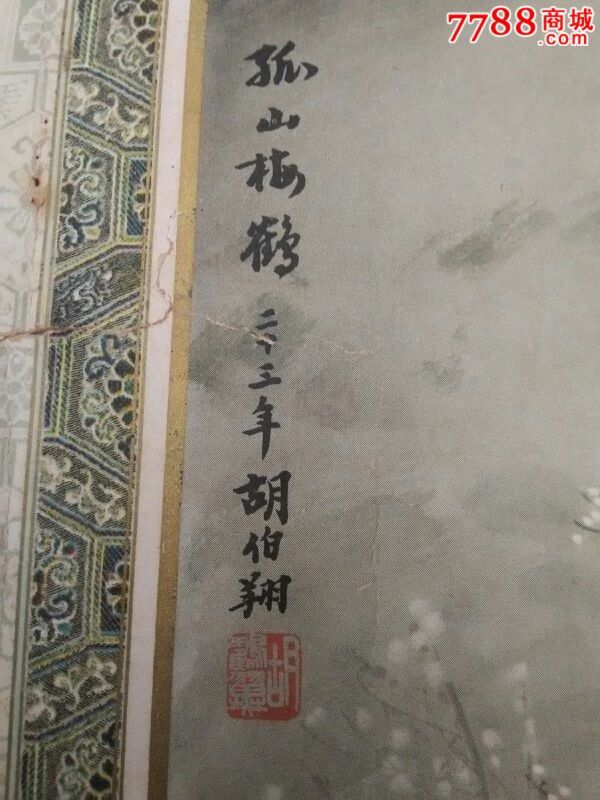 7788商城
.com
孤山梅鹤二十三年胡伯翔
胡